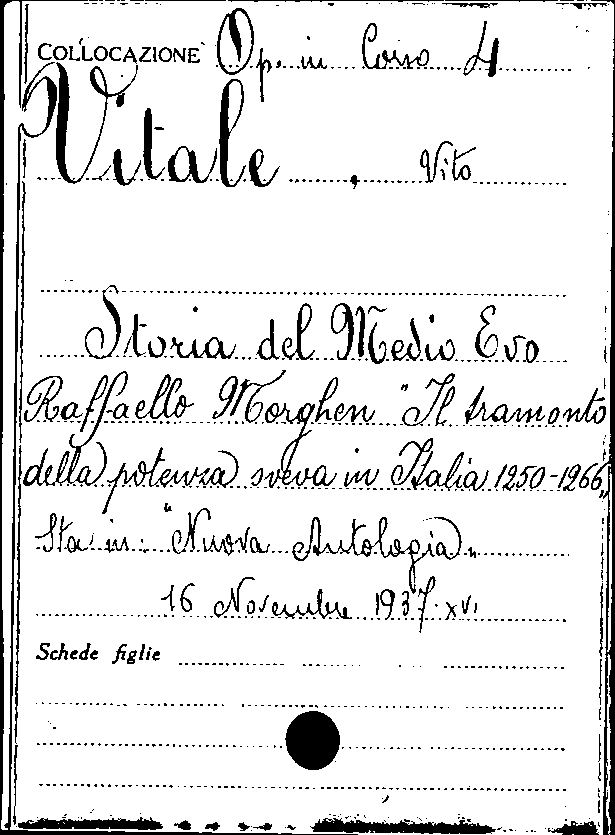 COLLOCAZIONE Op. in Corso 4
Vitale, Vito
Storia del Medio Evo
Raffaello Morghen "Il tramonto
della potenza sveva in Italia 1250-1266"
Sta in: "Nuova Antologia"
16 Novembre 1937. XVI
Schede figlie